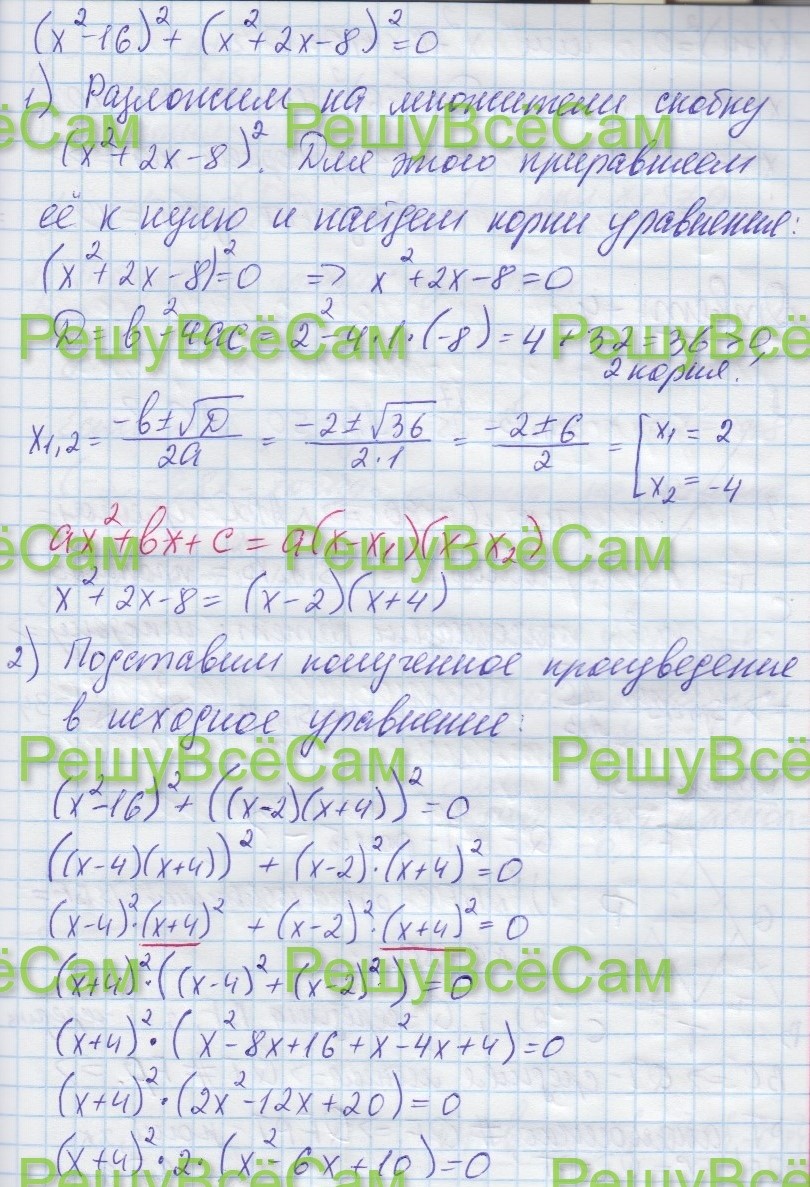 (x²-16)² + (x²+2x-8)² = 0
1) Разложим на множители скобку
(x²+2x-8)². Для этого приравняем
её к нулю и найдем корни уравнения:
(x²+2x-8)² = 0 => x²+2x-8=0
D = b²-4ac = 2²-4·1·(-8) = 4+32=36>0,
2 корня.
x₁,₂ = (-b±√D)/(2a) = (-2±√36)/(2·1) = (-2±6)/2 = [x₁ = 2
x₂ = -4
ax²+bx+c = a(x-x₁)(x-x₂)
x²+2x-8 = (x-2)(x+4)
2) Подставим полученное произведение
в исходное уравнение:
(x²-16)² + ((x-2)(x+4))² = 0
((x-4)(x+4))² + (x-2)²·(x+4)² = 0
(x-4)²·(x+4)² + (x-2)²·(x+4)² = 0
(x+4)²·((x-4)² + (x-2)²) = 0
(x+4)²·(x²-8x+16+x²-4x+4)=0
(x+4)²·(2x²-12x+20)=0
(x+4)²·2·(x²-6x+10)=0
РешуВсёСам